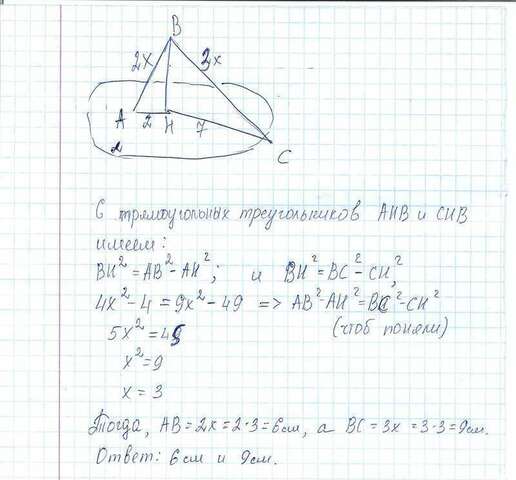 B
2x 3x
A 2 H 7
α C
С прямоугольных треугольников АНВ и СНВ
имеем:
BH²=AB²-AH²; и BH²=BC²-CH²,
4x²-4=9x²-49 => AB²-AH²=BC²-CH²
5x²=45 (чтоб поняли)
x²=9
x=3
Тогда, AB=2x=2·3=6см, а BC=3x=3·3=9см.
Ответ: 6см и 9см.